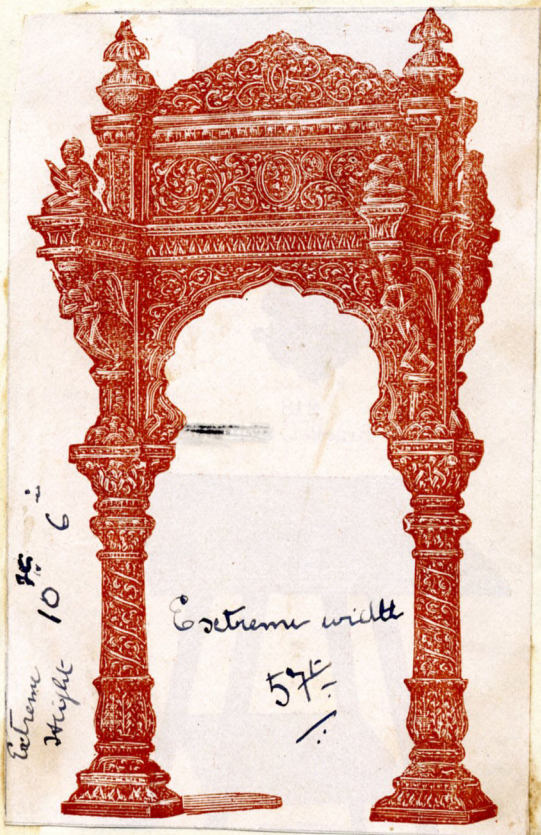 Extreme
Height 10 ft 6 in
Extreme width
5 ft